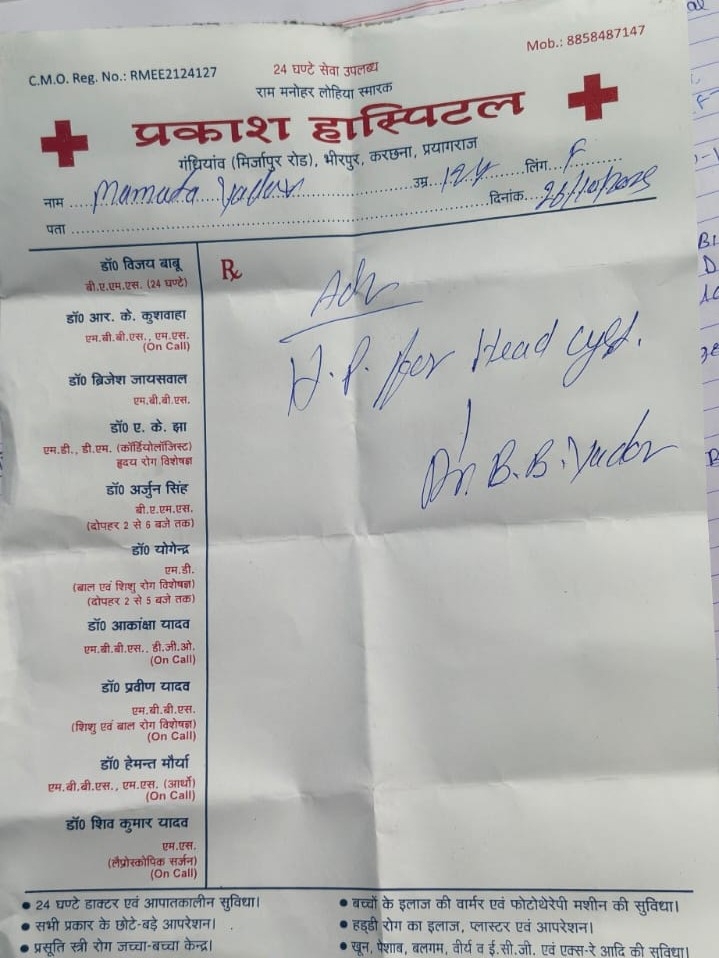 C.M.O. Reg. No.: RMEE2124127
24 घण्टे सेवा उपलब्ध
Mob.: 8858487147
राम मनोहर लोहिया स्मारक
प्रकाश हास्पिटल
गंधियांव (मिर्जापुर रोड), भीरपुर, करछना, प्रयागराज
नाम Mamata Yadav उम्र 12 y लिंग F
पता दिनांक 26/10/2025
डॉ0 विजय बाबू
बी.ए.एम.एस. (24 घण्टे)
डॉ0 आर. के. कुशवाहा
एम.बी.बी.एस., एम.एस.
(On Call)
डॉ0 ब्रिजेश जायसवाल
एम.बी.बी.एस.
डॉ0 ए. के. झा
एम.डी., डी.एम. (कॉर्डियोलॉजिस्ट)
हृदय रोग विशेषज्ञ
डॉ0 अर्जुन सिंह
बी.ए.एम.एस.
(दोपहर 2 से 6 बजे तक)
डॉ0 योगेन्द्र
एम.डी.
(बाल एवं शिशु रोग विशेषज्ञ)
(दोपहर 2 से 5 बजे तक)
डॉ0 आकांक्षा यादव
एम.बी.बी.एस., डी.जी.ओ.
(On Call)
डॉ0 प्रवीण यादव
एम.बी.बी.एस.
(शिशु एवं बाल रोग विशेषज्ञ)
(On Call)
डॉ0 हेमन्त मौर्या
एम.बी.बी.एस., एम.एस. (आर्थो)
(On Call)
डॉ0 शिव कुमार यादव
एम.एस.
(लैप्रोस्कोपिक सर्जन)
(On Call)
℞
Adv
H.P. for Head cyst.
Dr. B. B. Yadav
• 24 घण्टे डाक्टर एवं आपातकालीन सुविधा।
• सभी प्रकार के छोटे-बड़े आपरेशन।
• प्रसूति स्त्री रोग जच्चा-बच्चा केन्द्र।
• बच्चों के इलाज की वार्मर एवं फोटोथेरेपी मशीन की सुविधा।
• हड्डी रोग का इलाज, प्लास्टर एवं आपरेशन।
• खून, पेशाब, बलगम, वीर्य व ई.सी.जी. एवं एक्स-रे आदि की सुविधा।